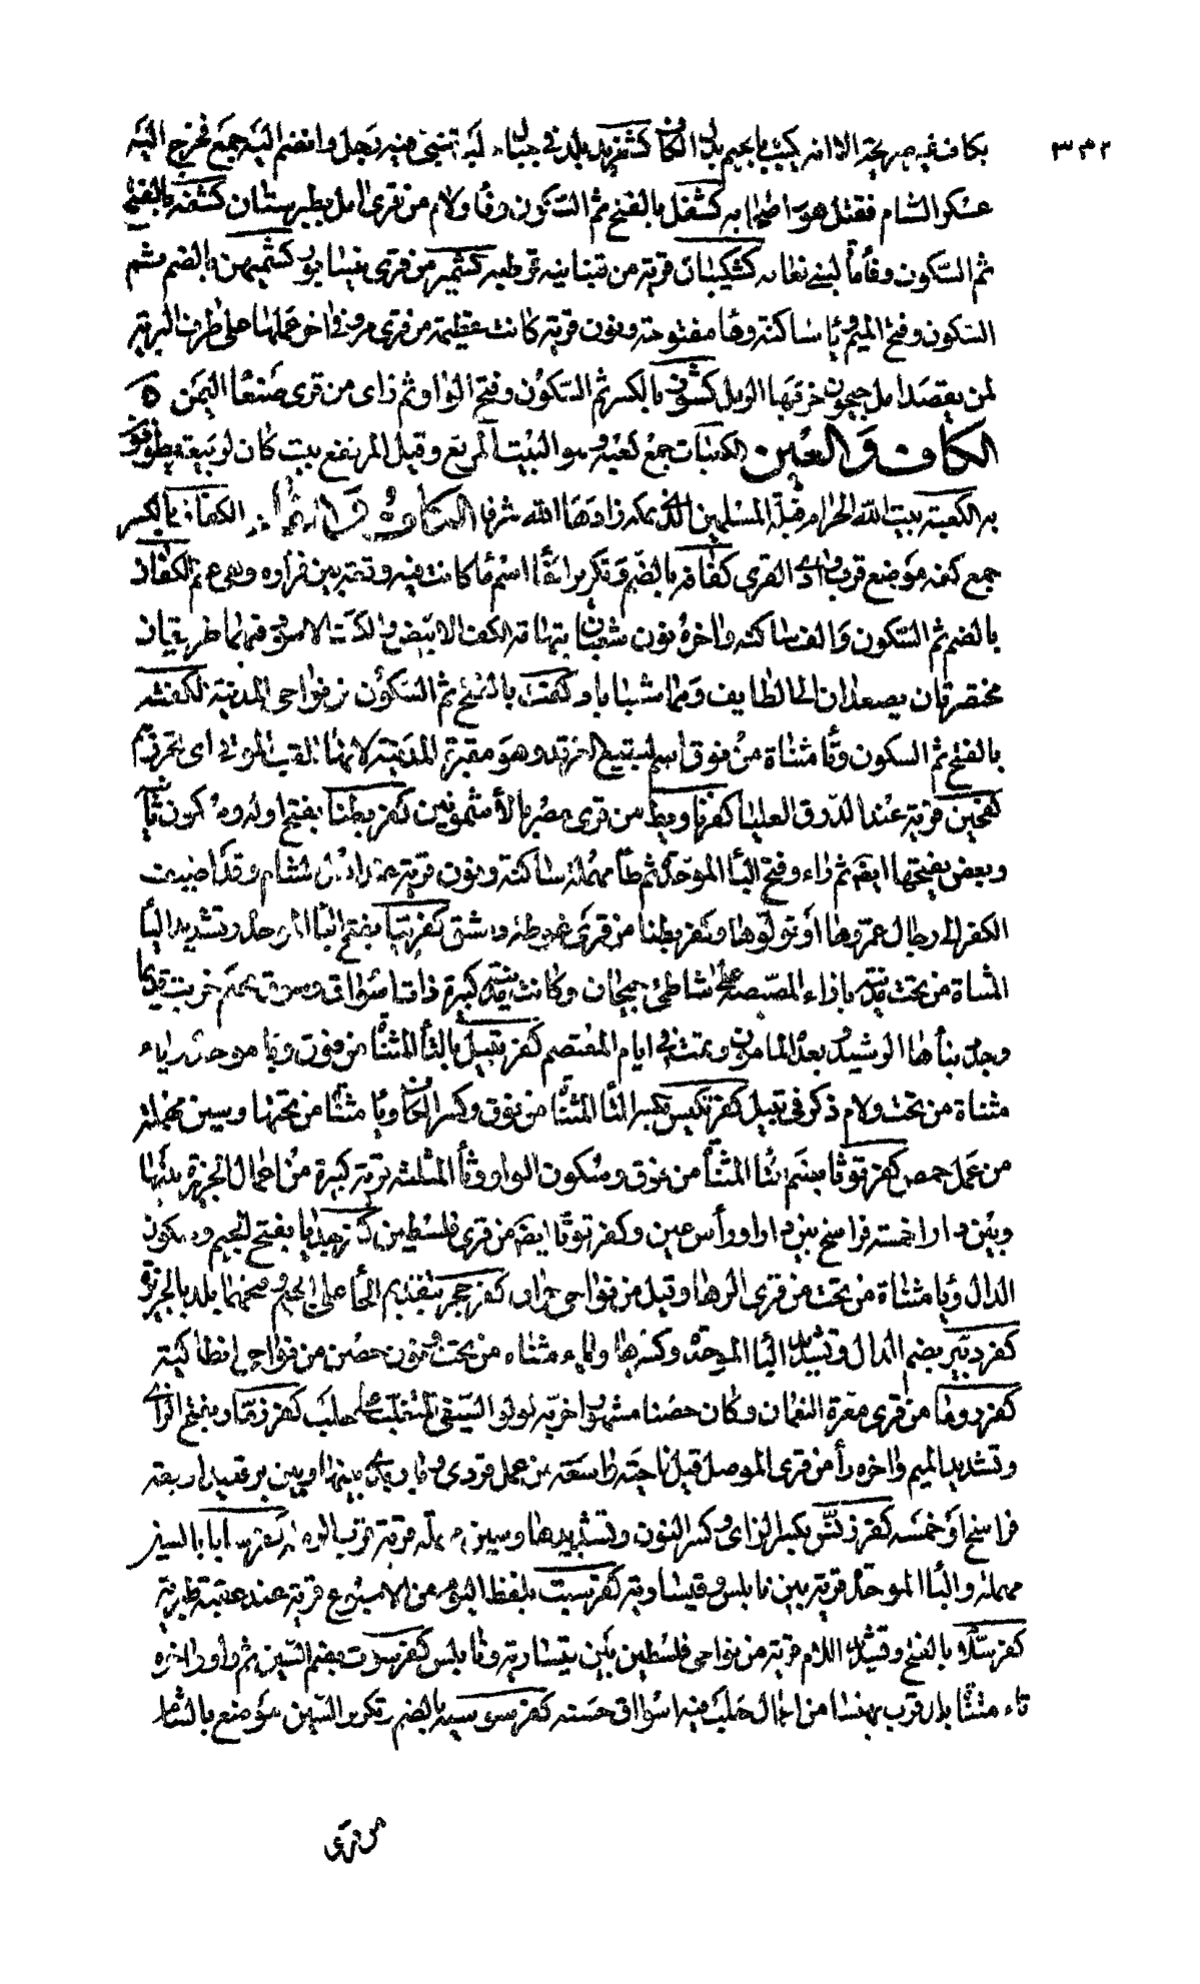 ٣٣٢
بكاف غير صريحة الا انه يكتب بالجيم بدل الكاف كشفريد بلد في جبال تنبئ فيه رجل وانضم اليه جمع فخرج اليه
عسكر الشام فقتل هو واصحابه كشفل بالفتح ثم السكون وفا ولام من قرى امل بطبرستان كشفة بالفتح
ثم السكون وفا ما لبني نعامه كشكينان قرية من قرطبة كشمر من قرى نيسابور كشميهن بالضم ثم
السكون وفتح الميم ويا ساكنة وها مفتوحة ونون قرية كانت عظيمة من قرى مرو في اخر عملها على طرف البرية
لمن يقصد امل جيحون خربها الرمل كشور بالكسر ثم السكون وفتح الواو ثم زاى من قرى صنعا اليمن ه
الكاف والعين الكعبات جمع كعبة وهو البيت المربع وقيل المرتفع بيت كان لربيعة يطوفون
به الكعبة بيت الله الحرام قبلة المسلمين التى بمكة زادها الله شرفا الكاف والفا الكفاف بالكسر
جمع كفه موضع قرب وادى القرى كفافه بالضم وتكرير الفا اسم ما كانت فيه وقعة بين فزاره وبنى عمرو الكفان
بالضم ثم السكون والف ساكنه واخره نون شعبان بتهامة الكف الابيض والكف الاسود فيهما طريقان
مختصرتان يصعدان الى الطايف وهما مشبابا كفت بالفتح ثم السكون من نواحى المدينة الكفتة
بالفتح ثم السكون وتا مثناة من فوق اسم لبقيع الغرقد وهو مقبرة المدينة لانها تكفت الموتى اى تحرزهم
كفجين قرية عند الدزق العليا كفر باويط من قرى مصر بالاشمونين كفر بطنا بفتح اوله وسكون ثانيه
وبعض يفتحها ايضا ثم راء وفتح البا الموحدة ثم طا مهملة ساكنة ونون قرية من الشام وقد اضيفت
الكفر الى رجال عمروها او تولوها وكفر بطنا من قرى غوطة دمشق كفر بيا بفتح البا الموحدة وتشديد اليا
المثناة من تحت مدينة بازاء المصيصة على شاطئ جيحان وكانت مدينة كبيرة ذات اسواق وسور محكم خربت قديما
وجدد بناها الرشيد بعد المامون وتمت في ايام المعتصم كفر تبيل بالتا المثناة من فوق وبا موحدة وياء
مثناة من تحت ولام ذكر في تبيل كفر تكيس بكسر التا المثناة من فوق وكسر الكاف ويا مثناة من تحتها وسين مهملة
من عمل حمص كفر توثا بضم التا المثناة من فوق وسكون الواو وثا المثلثة قرية كبيرة من اعمال الجزيرة بينها
وبين دارا خمسة فراسخ بين دارا وراس عين وكفر توثا ايضا من قرى فلسطين كفر جديا بفتح الجيم وسكون
الدال ويا مثناة من تحت من قرى الرها وقيل من نواحى حران كفر حجر بتقديم الحا على الجيم وضمهما بلد بالجزيرة
كفر دبين بضم الدال وتشديد البا الموحدة وكسرها والياء مثناه من تحت ونون حصن من نواحى انطاكية
كفر روما من قرى معرة النعمان وكان حصنا مشهورا خربه لولو السيفى المتغلب على حلب كفر زمار بفتح الزاى
وتشديد الميم واخره را من قرى الموصل قيل ناحية واسعة من عمل قردى وبازبدى بينها وبين برقعيد اربعة
فراسخ او خمسه كفر زنس بكسر الزاى وكسر النون وتشديدها وسين مهملة قرية قرب الرملة كفر سابا بالسين
مهملة والبا الموحدة قرية بين نابلس وقيسارية كفر سبت بلفظ اليوم من الاسبوع قرية عند عقبة طبرية
كفر سلام بالفتح وتشديد اللام قرية من نواحى فلسطين بين قيسارية ونابلس كفر سوت بضم السين ثم واو واخره
تاء مثناة بلد قرب بهنسا من اعمال حلب فيه اسواق حسنه كفر سوسية بالضم وتكرير السين موضع بالشام
من قرى